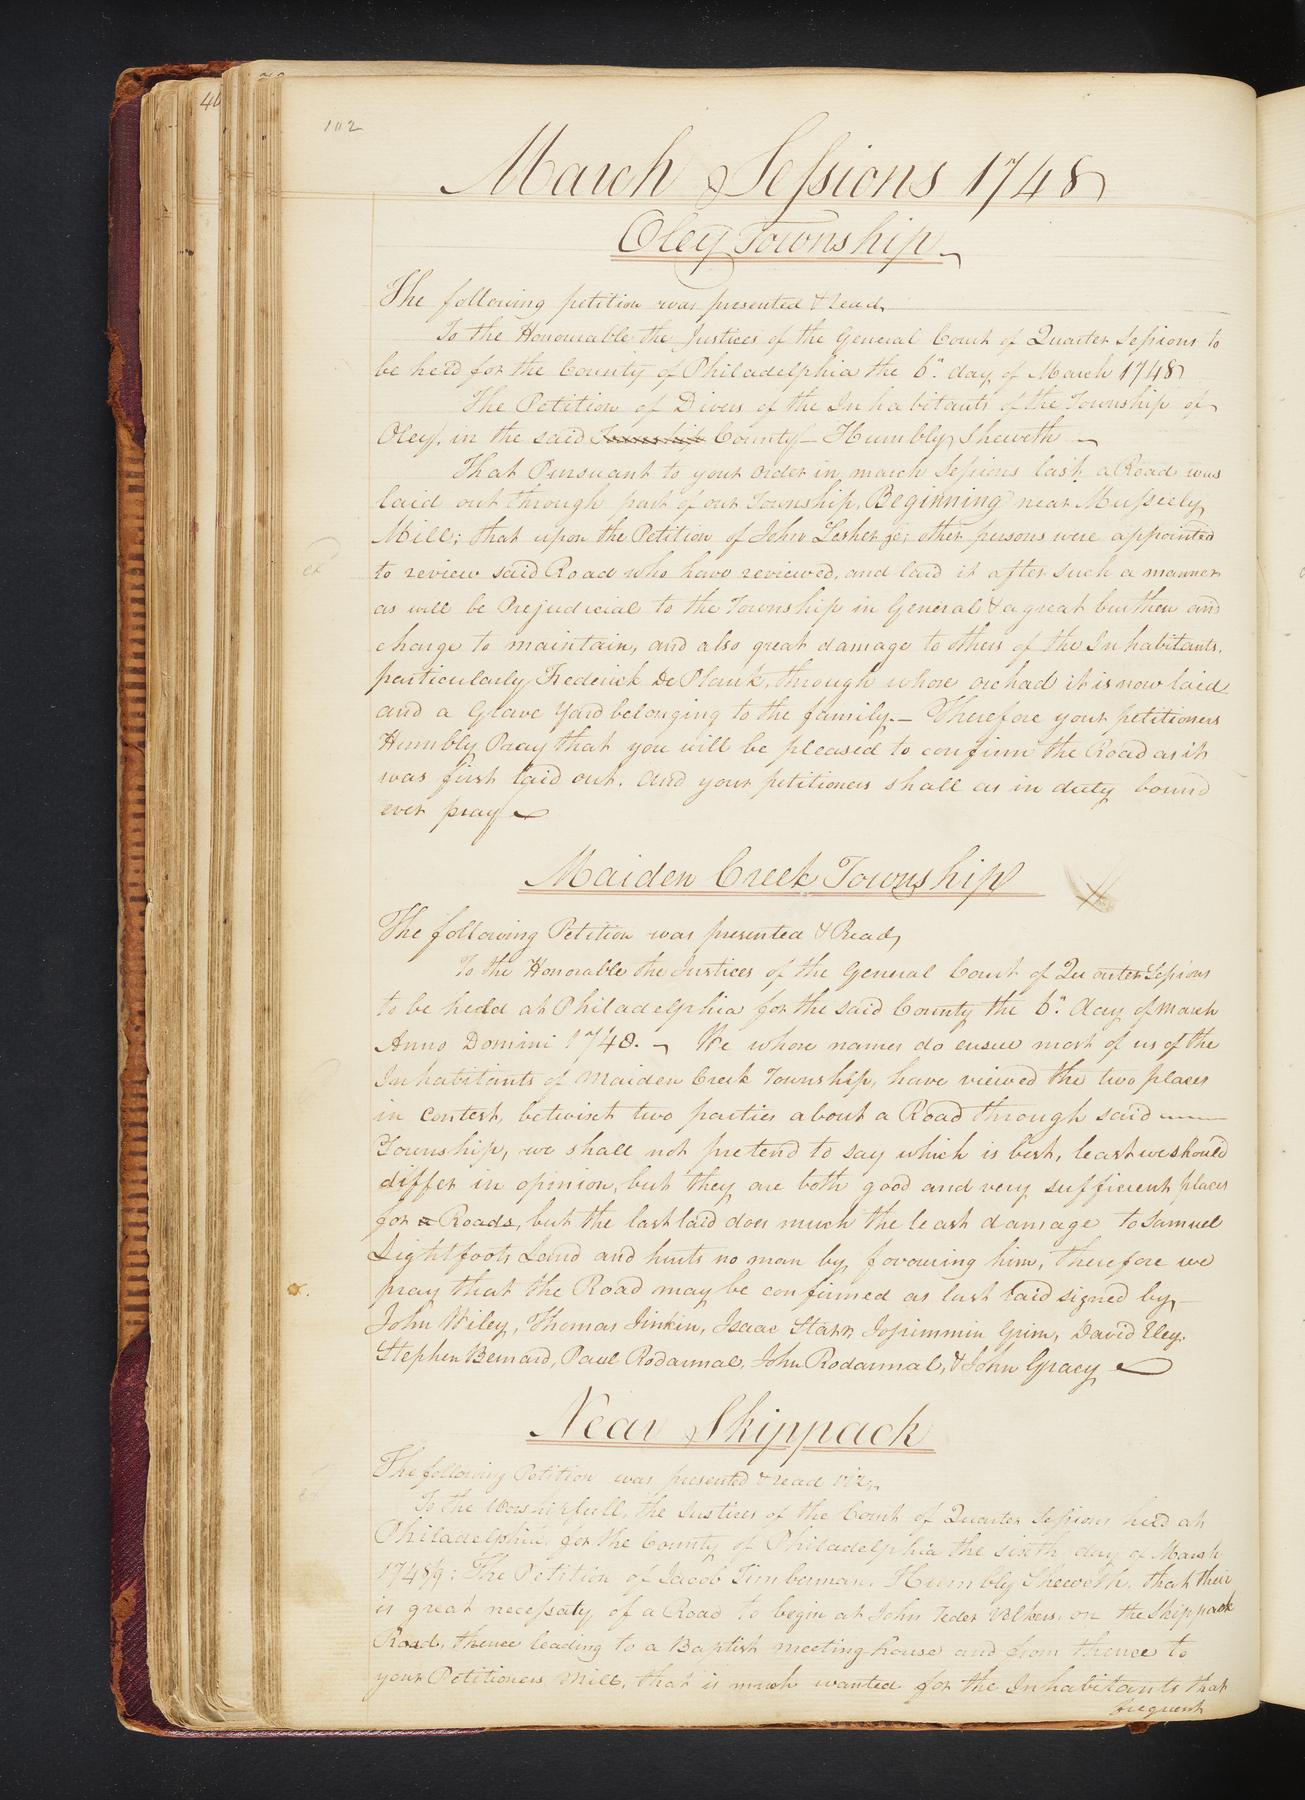 46
102
March Sessions 1748
Oley Township
The following petition was presented & read,
To the Honourable the Justices of the General Court of Quarter Sessions to
be held for the County of Philadelphia the 6th. day of March 1748
The Petition of Divers of the Inhabitants of the Township of
Oley, in the said Township County - Humbly Sheweth
That Pursuant to your order in march Sessions last, a Road was
laid out through part of our Township, Beginning near Musseely
Mill; that upon the Petition of John Lesher &c; other persons were appointed
to review said Road who have reviewed, and laid it after such a manner
as will be Prejudicial to the Township in General & a great burthen and
charge to maintain, and also great damage to others of the Inhabitants,
particularly Frederick De Plank, through whose orchad it is now laid
and a Grave Yard belonging to the family. - Therefore your petitioners
Humbly Pray that you will be pleased to confirm the Road as it
was first laid out. And your petitioners shall as in duty bound
ever pray
Maiden Creek Township
The following Petition was presented & Read,
To the Honorable the Justices of the General Court of Quarter Sessions
to be held at Philadelphia for the said County the 6th. day of March
Anno Domini 1748. - We whose names do ensue most of us of the
Inhabitants of Maiden Creek Township, have viewed the two places
in contest, betwixt two parties about a Road through said
Township, we shall not pretend to say which is best, least we should
differ in opinion, but they are both good and very sufficient places
for a Roads, but the last laid does much the least damage to Samuel
Lightfoots Land and hurts no man by favouring him, therefore we
pray that the Road may be confirmed as last laid signed by
John Wiley, Thomas Jinkin, Isaac Starr, Josimmin Grim, David Eley,
Stephen Bernard, Paul Rodarmal, John Rodarmal, & John Gracy
Near Skippack
The following Petition was presented & read viz,
To the Worshipfull, the Justices of the Court of Quarter Sessions held at
Philadelphia, for the County of Philadelphia the sixth day of March
1748/9: The Petition of Jacob Timberman, Humbly Sheweth, that their
is great necessaty of a Road to begin at John on the Skippack
Road, thence leading to a Baptist meeting house and from thence to
your Petitioners Mill, that is much wanted for the Inhabitants that
frequent